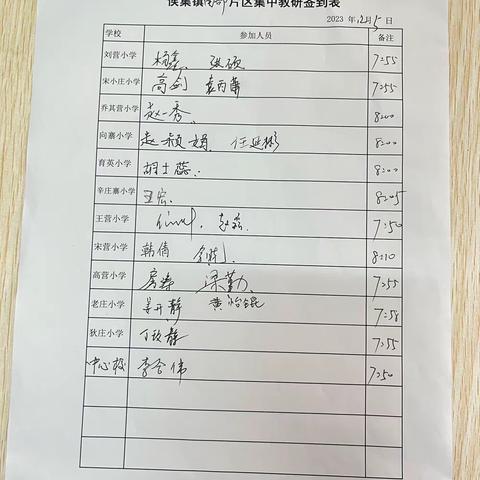 侯集镇南部片区集中教研签到表
2023 年12月5日
学校 参加人员 备注
刘营小学 杨鑫 张硕 7:55
宋小庄小学 高剑 袁丙菊 7:55
乔其营小学 赵一秀. 8:00
向寨小学 赵颖娟. 任延彬 8:00
育英小学 胡士蕊. 8:00
辛庄寨小学 王宏. 8:05
王营小学 赵 7:50
宋营小学 韩倩 8:10
高营小学 房涛 梁勤. 7:55
老庄小学 姜开静 黄怡锟 7:58
狄庄小学 丁玫静 7:55
中心校 李合伟 7:50